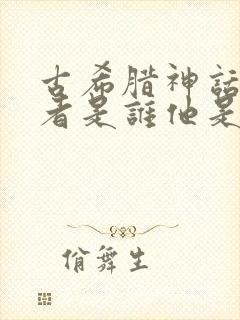 古希腊神話
者是誰他是
俏舞生